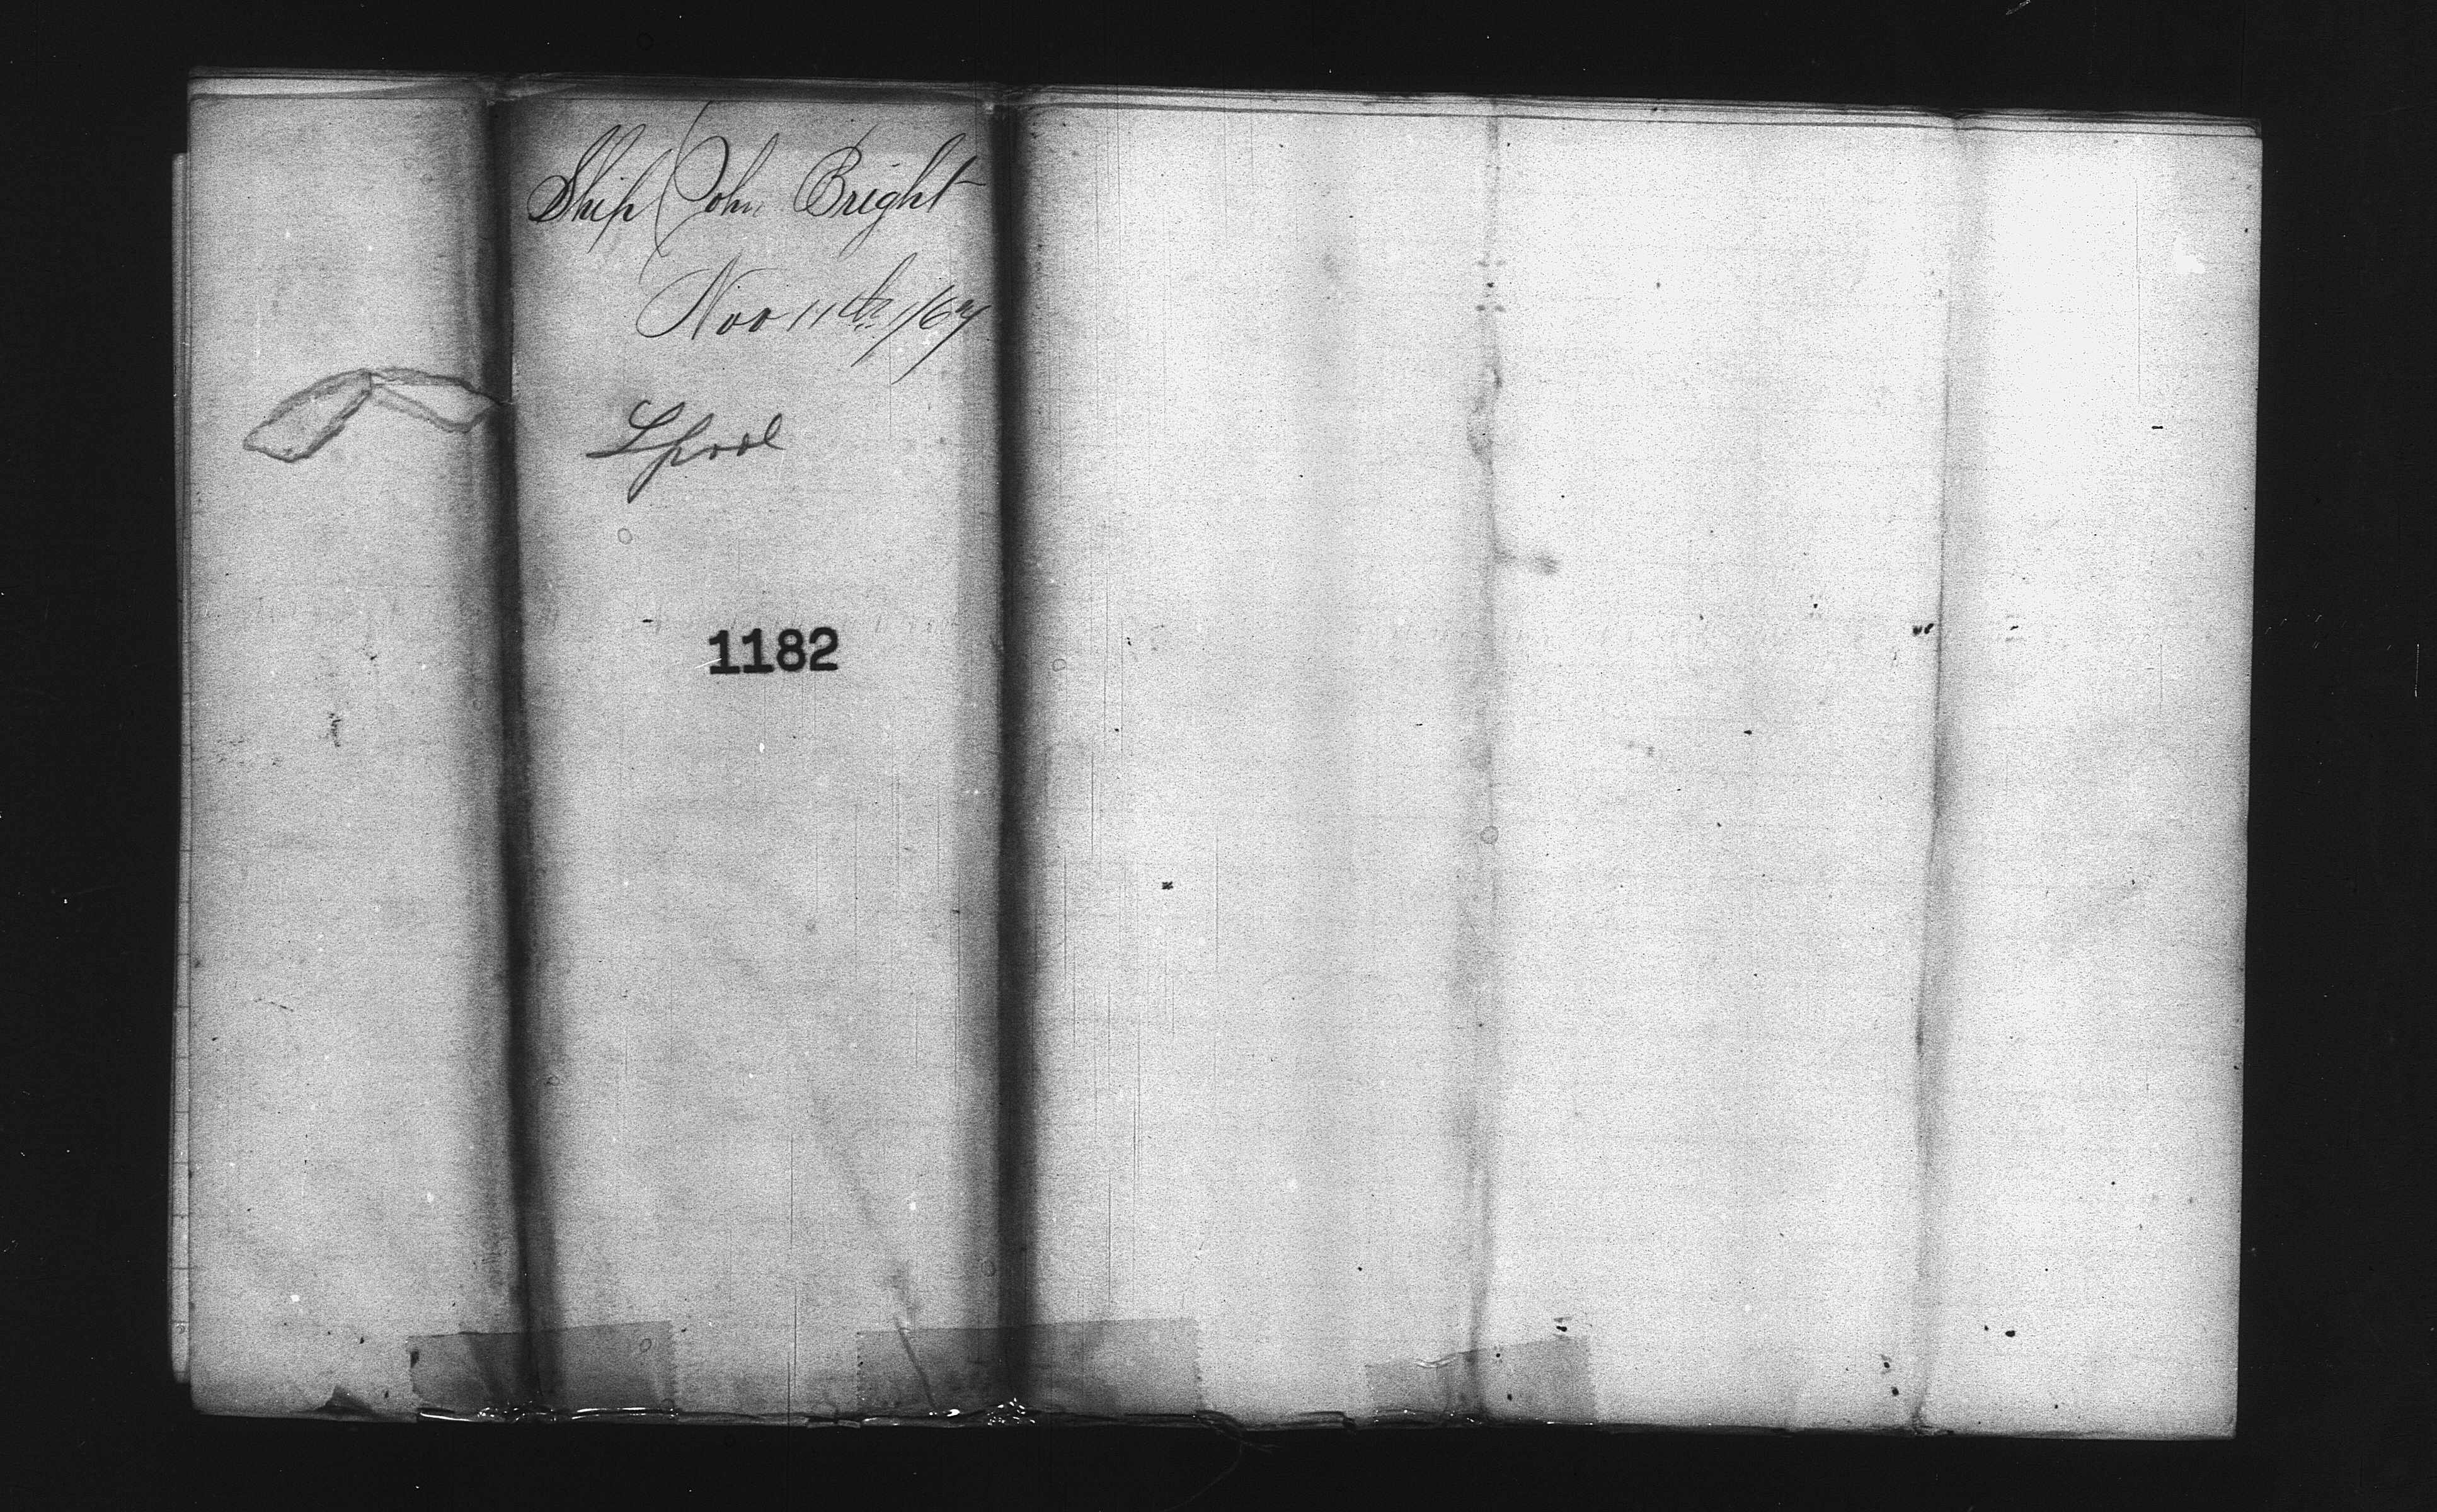 Ship John Bright
Nov 11th /67
Lpool
1182